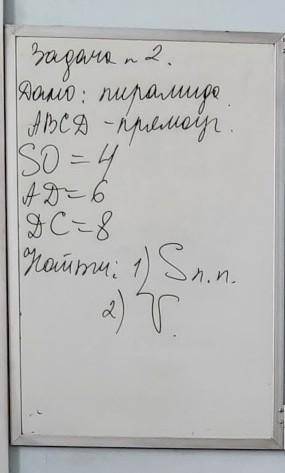 Задача n 2.
Дано: пирамида.
ABCD - прямоуг.
SO = 4
AD = 6
DC = 8
Найти: 1) Sп.п.
2) V.